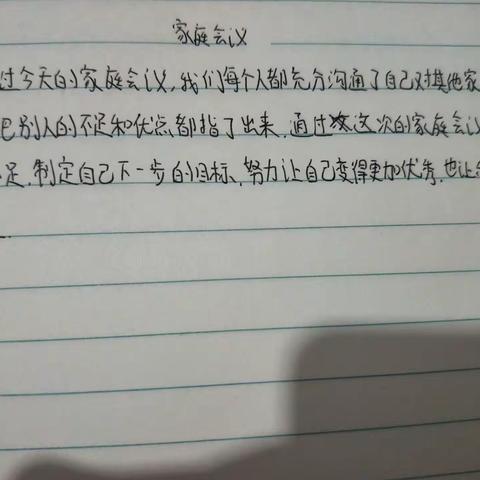 家庭会议
过今天的家庭会议,我们每个人都充分沟通了自己对其他家
把别人的不足和优点都指了出来.通过这次的家庭会议
足.制定自己下一步的目标,努力让自己变得更加优秀.也让